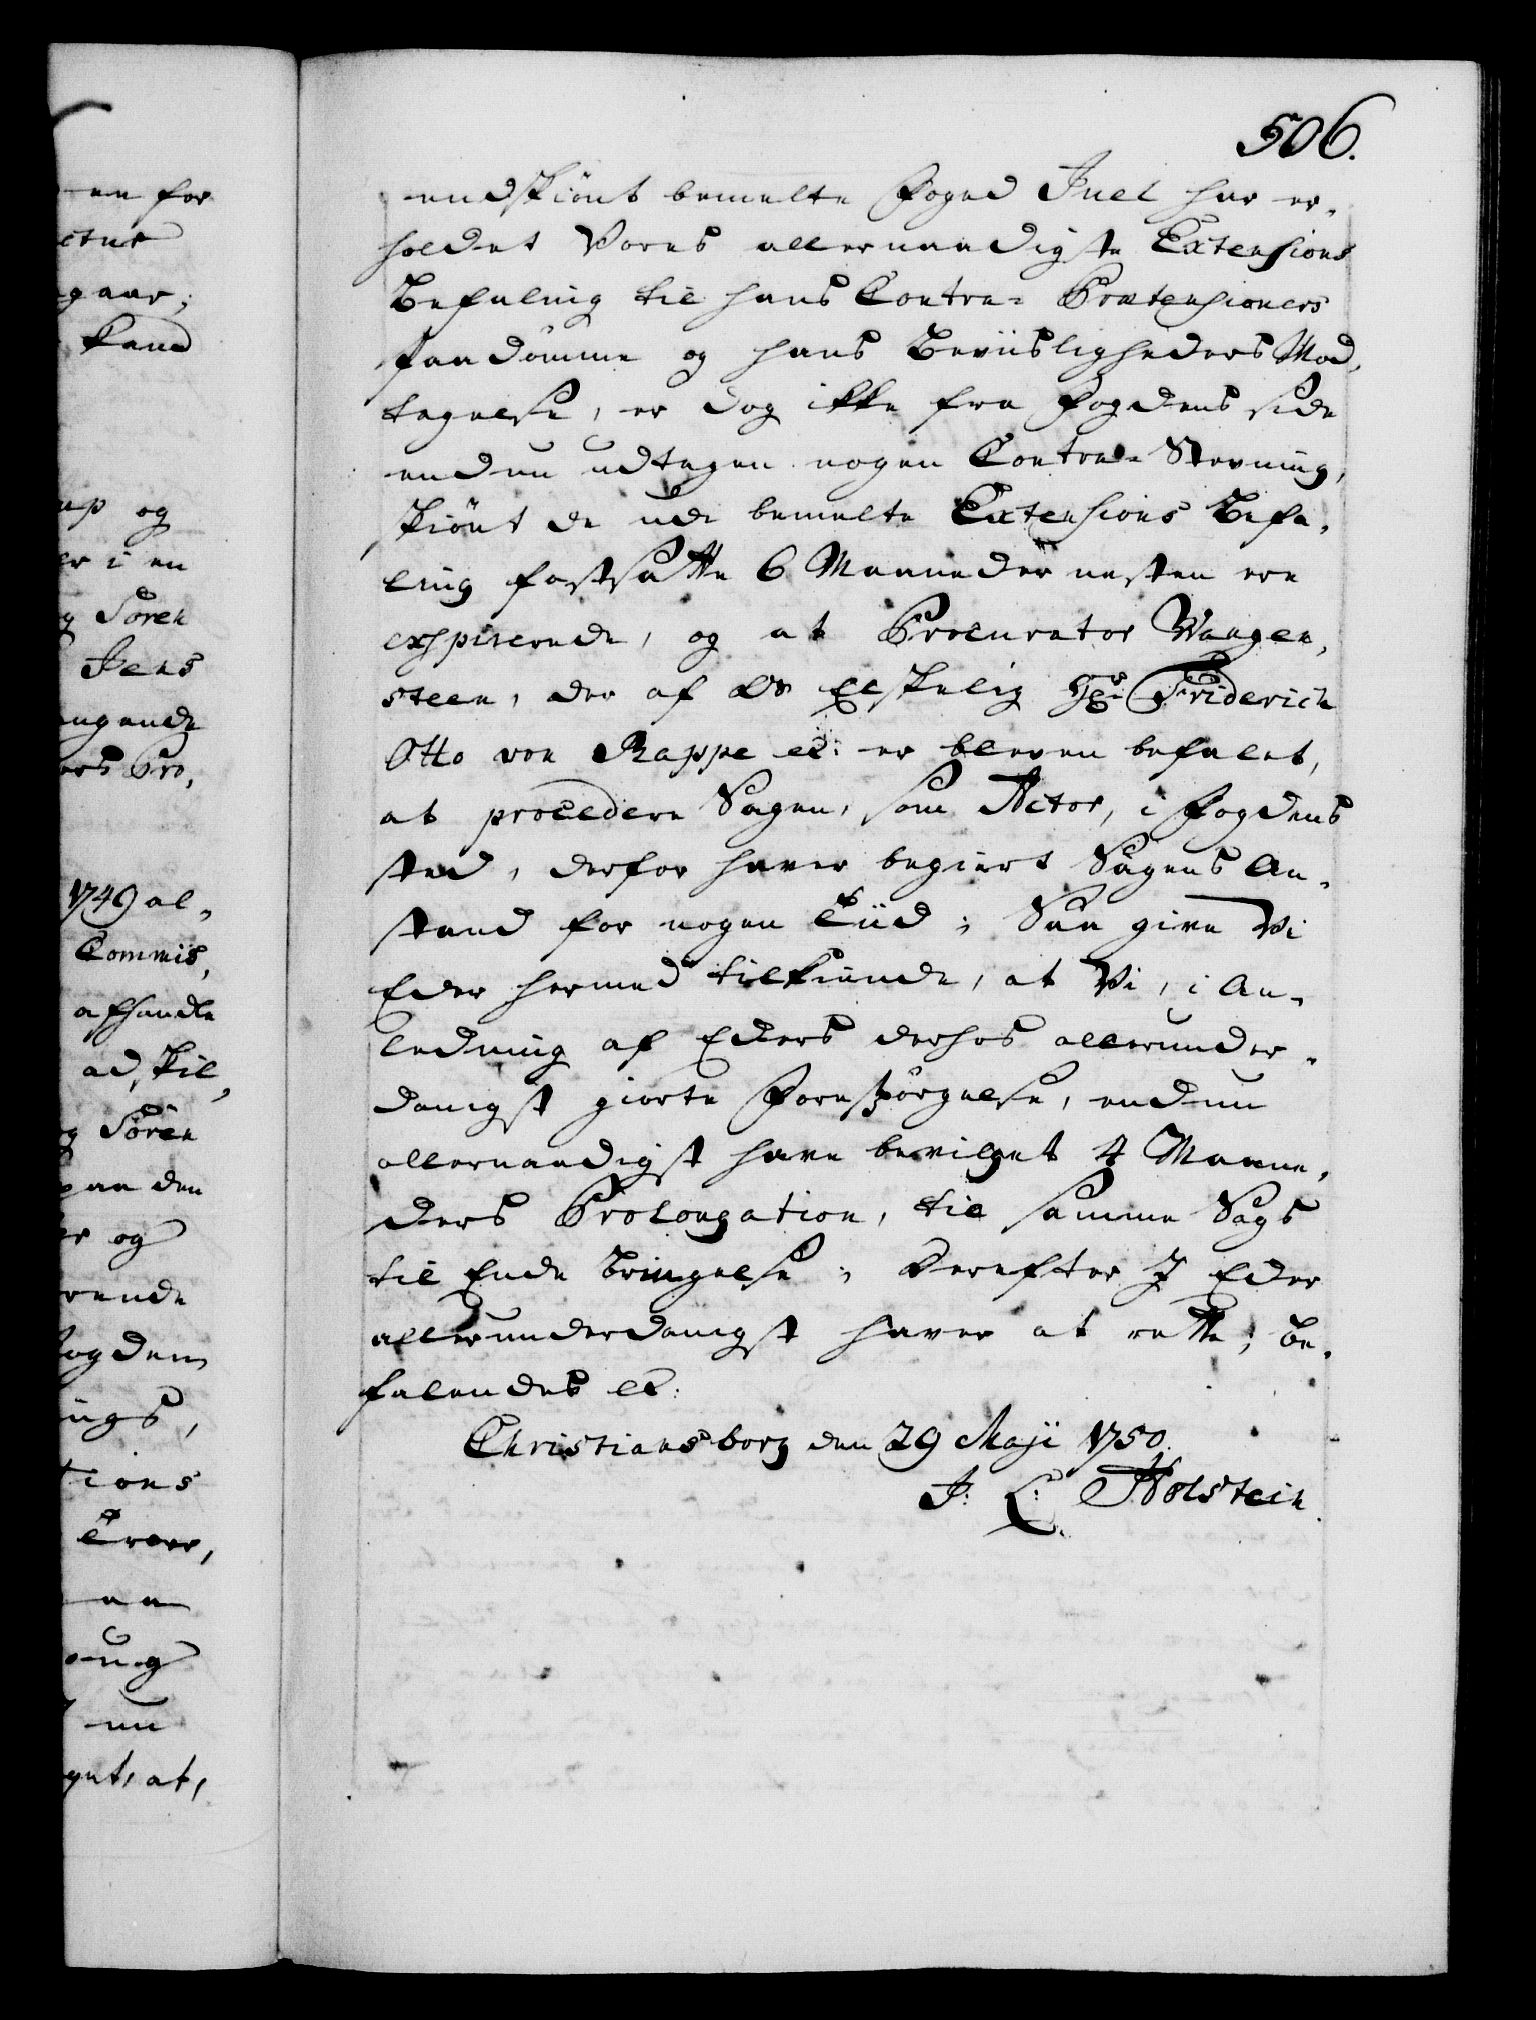 506.
endskiønt bemelte Foged Juel har er-
holdet Vores allernaadigste Extensions
Befaling til hans Contra- Prætensioners
paadømme og hans Beviisligheders Mod-
tagelse, er dog ikke fra Fogdens side
endnu udtagen nogen Contra- Stevning,
skiønt de udi bemelte Extensions Befa-
ling fastsatte 6 Maaneder nesten ere
exspirerede, og at Procurator Wangen-
steen, der af Os Elskelig Hr: Friderich
Otto von Rappe etc: er bleven befalet,
at procedere Sagen, som Actor, i Fogdens
sted, derfor haver begiert Sagens An-
stand for nogen Tiid; Saa give Vi
Eder hermed tilkiende, at Vi, i An-
ledning af Eders derhos allerunder-
danigst giorte Forespørgelse, endnu
allernaadigst have bevilget 4 Maane-
ders Prolongation, til samme Sags
til Ende Bringelse; Derefter I Eder
allerunderdanigst haver at rette; Be-
falendes etc:
Christiansborg den 29 Maji 1750.
J: L: Holstein.
en for
ctus
gaar;
kand
up og
er i en
g Søren
Jens
ngende
ers Pro,
1749 al-
Commis,
afhandle
adskil,
g Søren
paa den
er og
rende
ogdem
ings,
tions
nu
gnt, at,